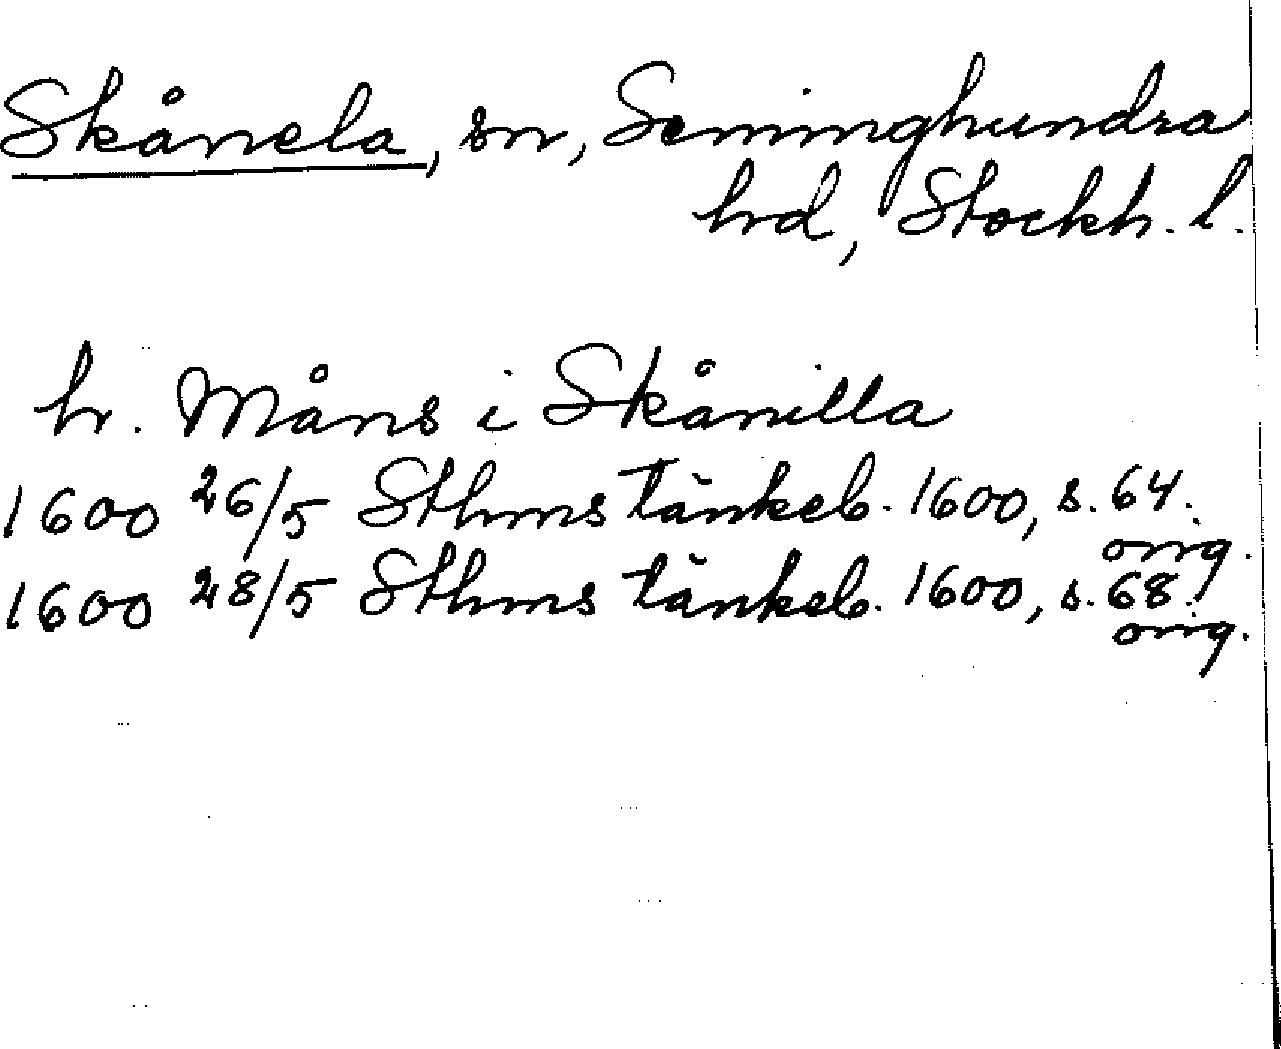 Skånela, sn, Seminghundra
hd, Stockh. l.
hr. Måns i Skånilla
1600 26/5 Sthms tänkeb. 1600, s. 64.
orig.
1600 28/5 Sthms tänkeb. 1600, s. 68.
orig.